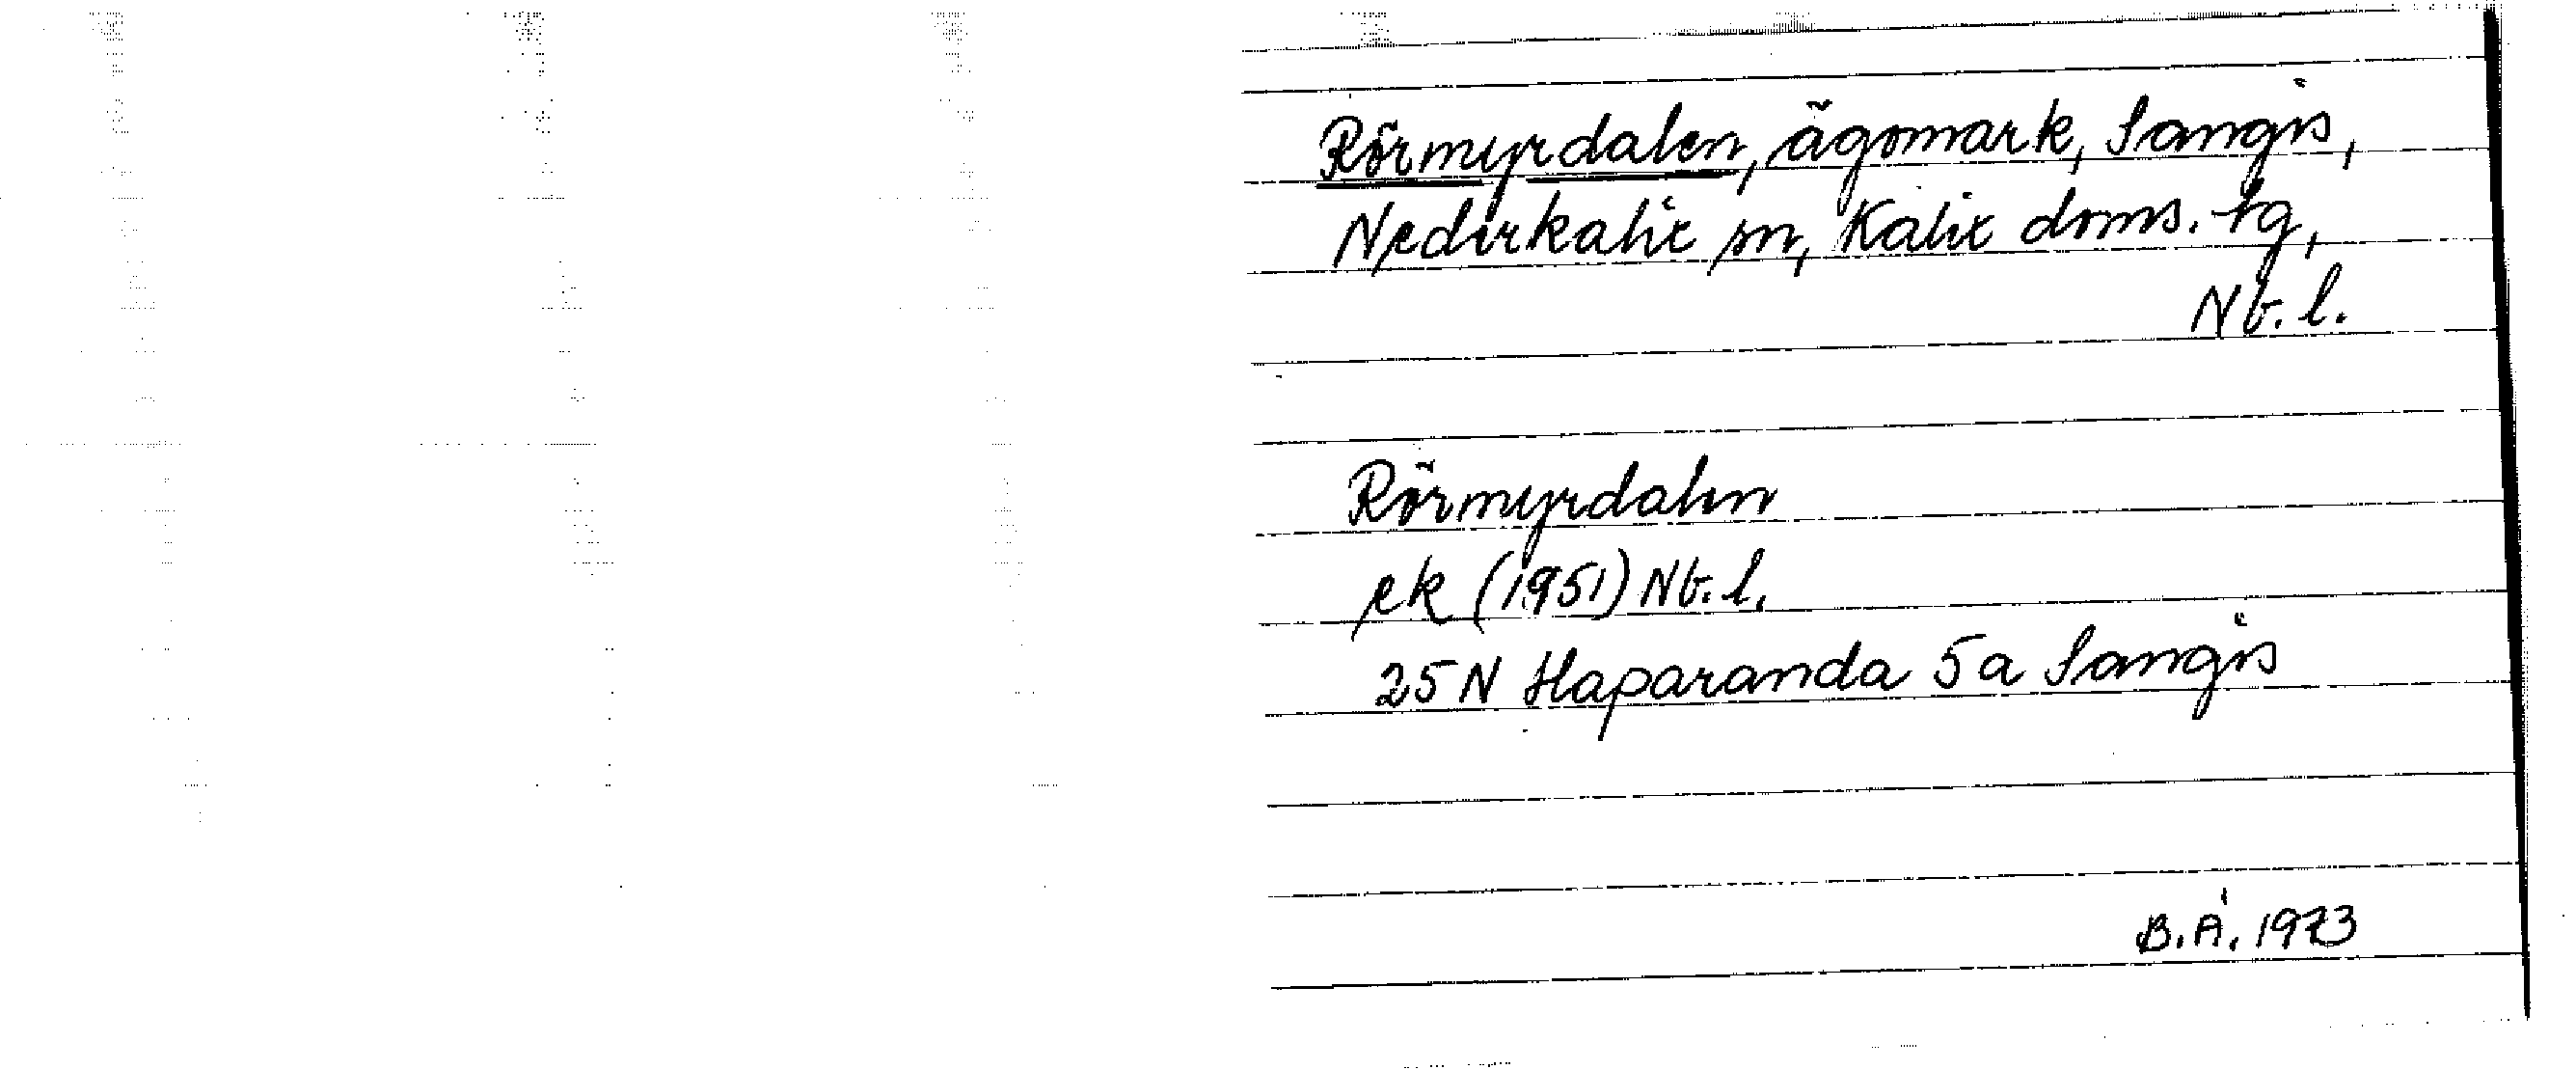 Rörmyrdalen, ägomark, Sangis,
Nederkalix sn, Kalix doms. tg,
Nb. l.
Rörmyrdalen
ek (1951) Nb. l.
25 N Haparanda 5a Sangis
B.Å. 1973